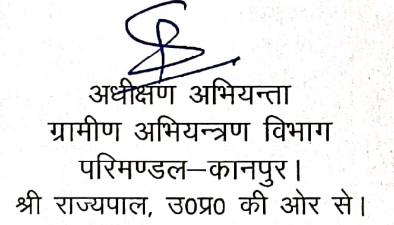 अधीक्षण अभियन्ता
ग्रामीण अभियन्त्रण विभाग
परिमण्डल–कानपुर।
श्री राज्यपाल, उ0प्र0 की ओर से।